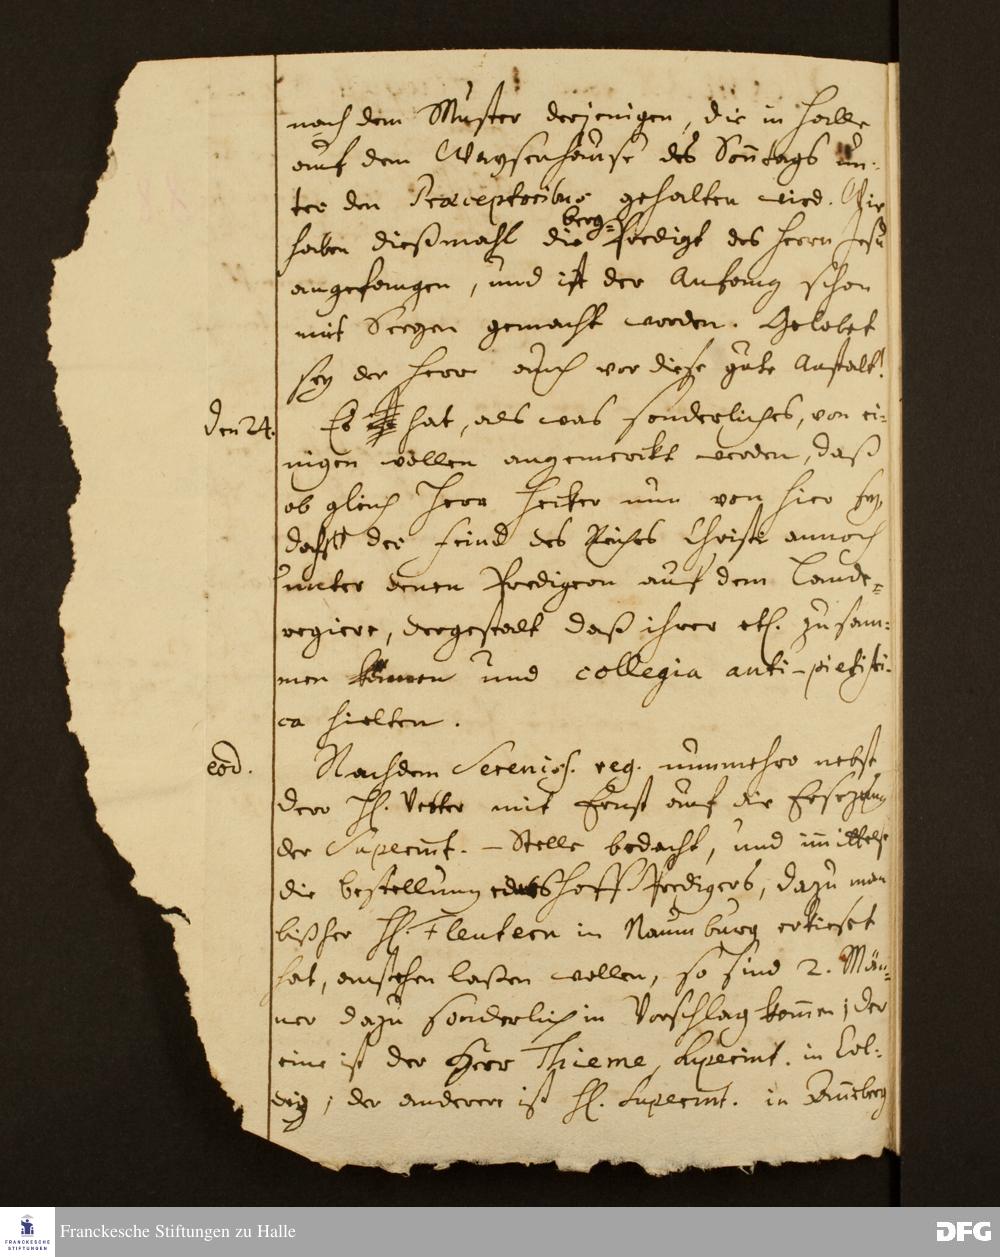 nach dem Muster derjenigen, die in Halle
auf dem Waysenhause des Sontags un-
ter den Praeceptoribus gehalten wird. Wir
haben dießmahl die berg-Predigt des Herrn Jesu
angefangen, und ist der Anfang schon
mit Seegen gemacht worden. Gelobet
sey der Herr auch vor diese gute Anstalt!
den 24. Es hat, als was sonderliches, von ei-
nigen wollen angemerckt werden, daß
ob gleich Herr nun von hier sey,
doch der Feind des Reiches Christi annoch
unter denen Predigern auf dem Lande
regiere, dergestalt daß ihrer etl. zusam-
men kämen und collegia anti-pietisti-
ca hielten.
eod. Nachdem Sereniss. reg. nunmehro nebst
dero H. Vetter mit Ernst auf die Ersezung
der Superint.-Stelle bedacht, und immittelst
die bestellung des HoffPredigers, dazu man
bißher H. Fleutern in Naumburg erkieset
hat, anstehen laßen wollen, so sind 2. Män-
ner dazu sonderlich in Vorschlag kommen; der
eine ist der Herr Thieme, Superint. in Col-
diz; der anderere ist H. Superint. in
Franckesche Stiftungen zu Halle
FRANCKESCHE
STIFTUNGEN
DFG